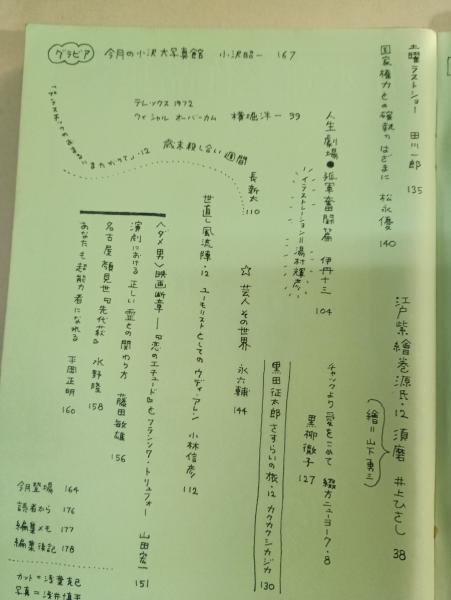 グラビア 今月の小沢大写真館 小沢昭一 167
土曜ラストショー 田川一郎 135
国家権力との確執のはざまに 松永優 140
テレックス1972
ウィシャル オーバーカム 横堀洋一 99
人生劇場●孤軍奮闘篇 伊丹十三 104
イラストレーション=湯村輝彦
歳末殺し合い週間
長新太 110
江戸紫絵巻源氏・12 須磨 井上ひさし 38
(絵=山下勇三)
チャックより愛をこめて 綴方ニューヨーク・8
黒柳徹子 127
黒田征太郎 さすらいの旅・12 カクカクシカジカ 130
☆ 芸人 その世界 永六輔 144
世直し風流陣・12 ユーモリストとしてのウディ・アレン 小林信彦 112
〈ダメ男〉映画断章──「恋のエチュード」とフランソワ・トリュフォー 山田宏一 151
演劇における正しい霊との関わり方 藤田敏雄 156
名古屋顔見世 水野隆 158
あなたも超能力者になれる 平岡正明 160
今月登場 164
読者から 176
編集メモ 177
編集後記 178
カット=浅葉克己
写真=浅井慎平